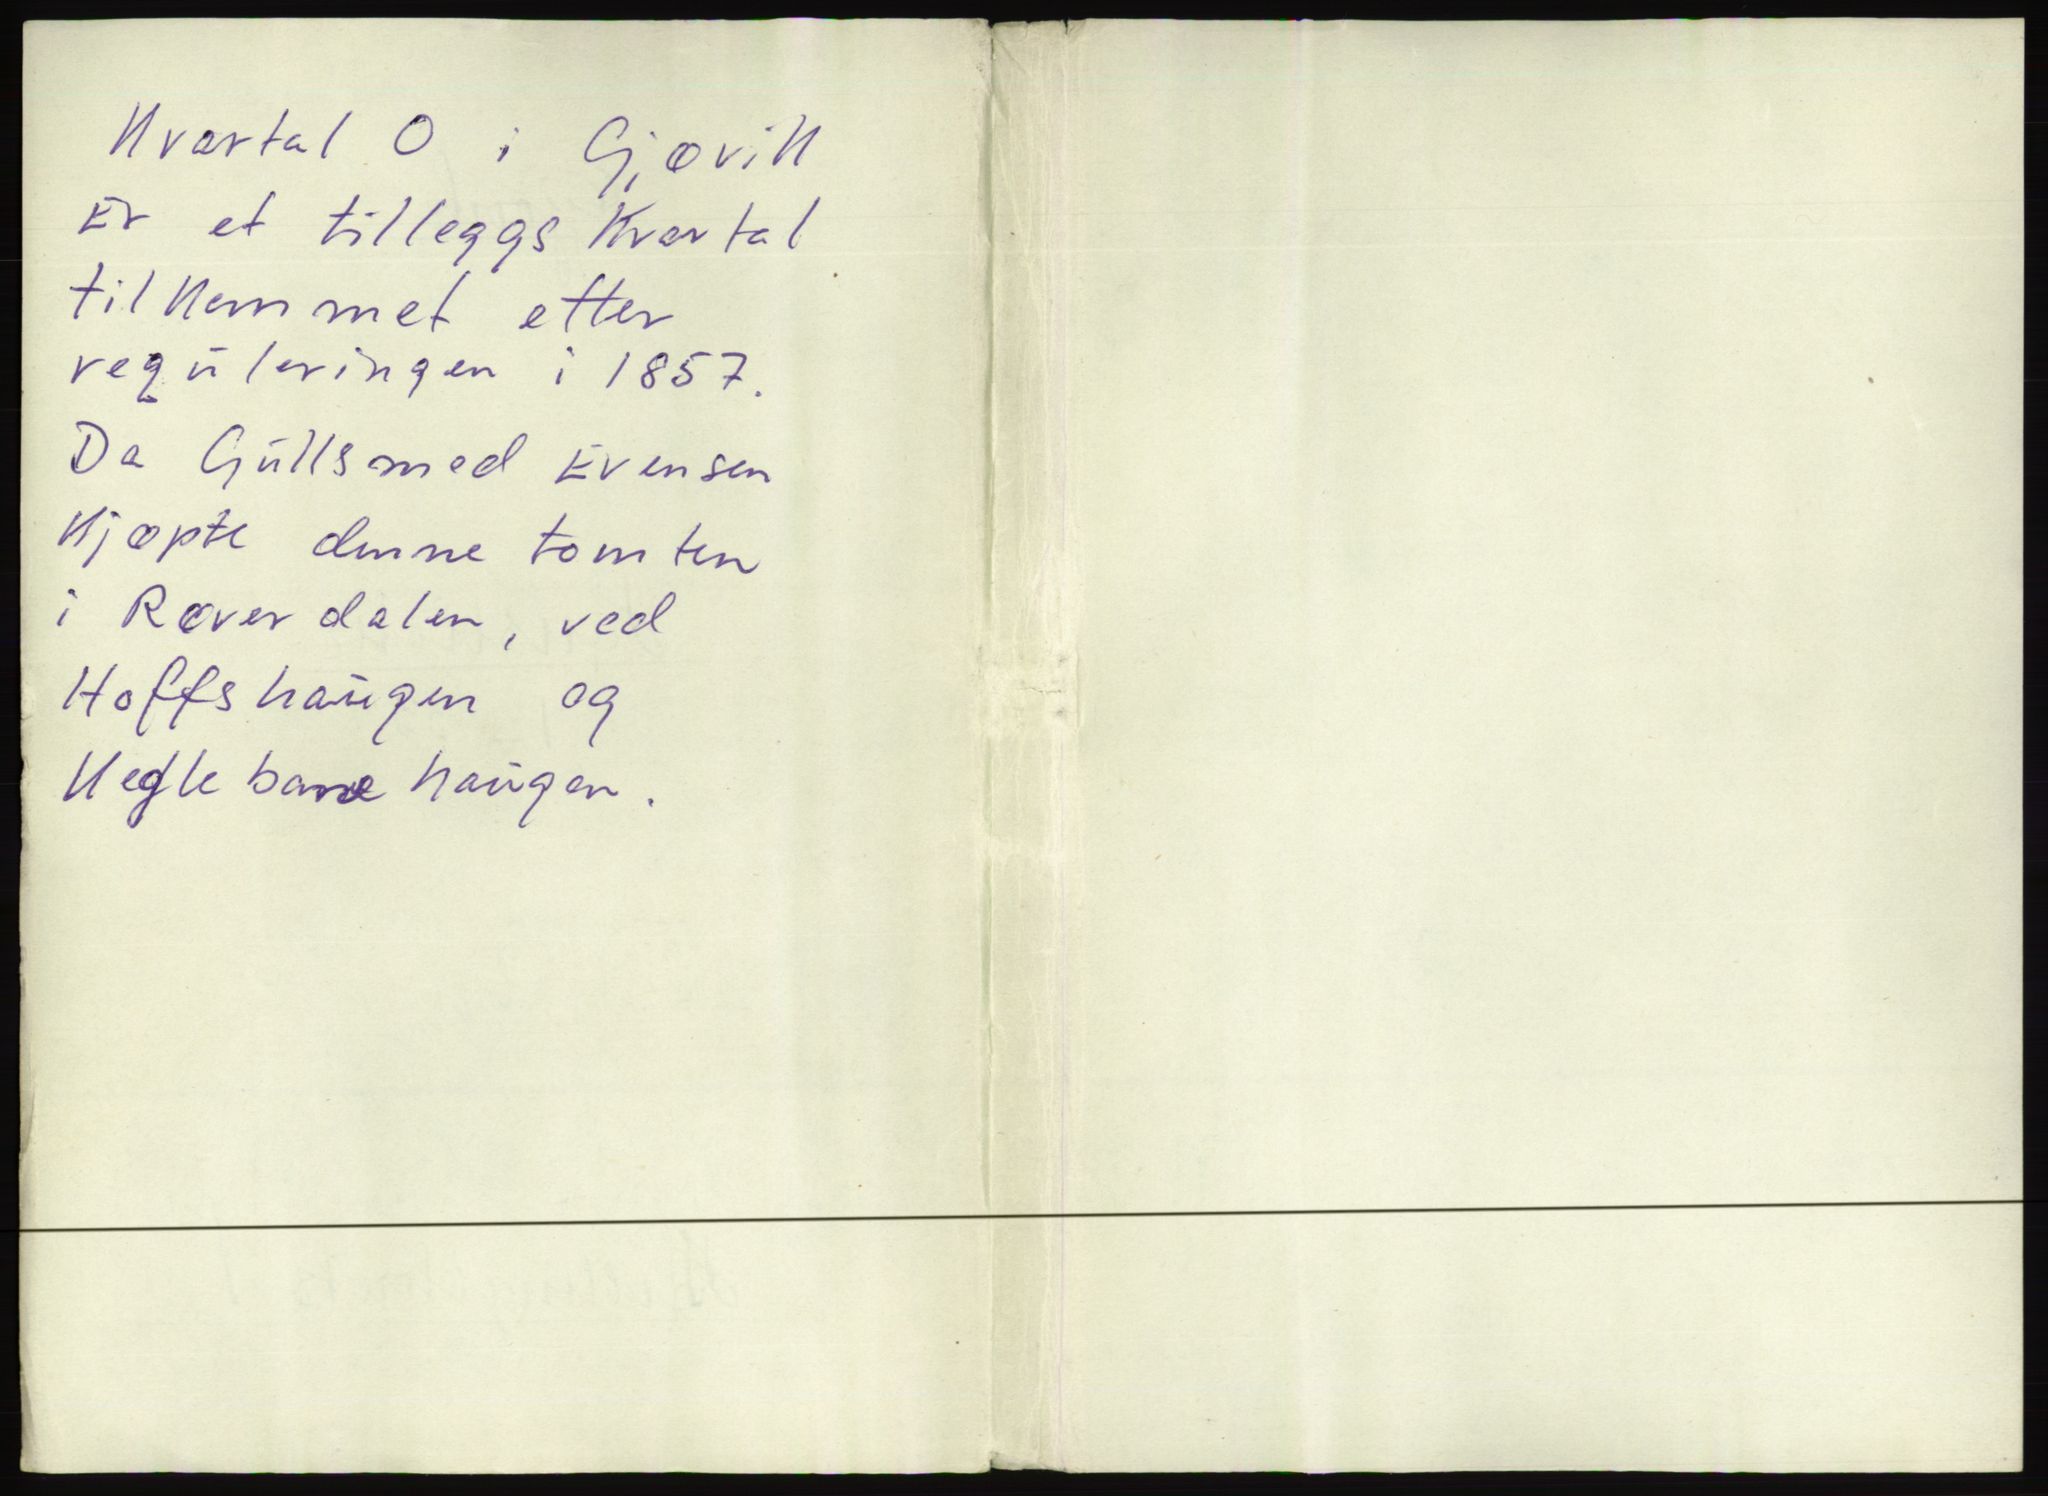 Kvartal O i Gjøvik
Er et tilleggs Kvartal
tilkommet etter
reguleringen i 1857.
Da Gullsmed Evensen
Kjøpte denne tomten
i Røverdalen, ved
Hoffshaugen og
Keglebane haugen.